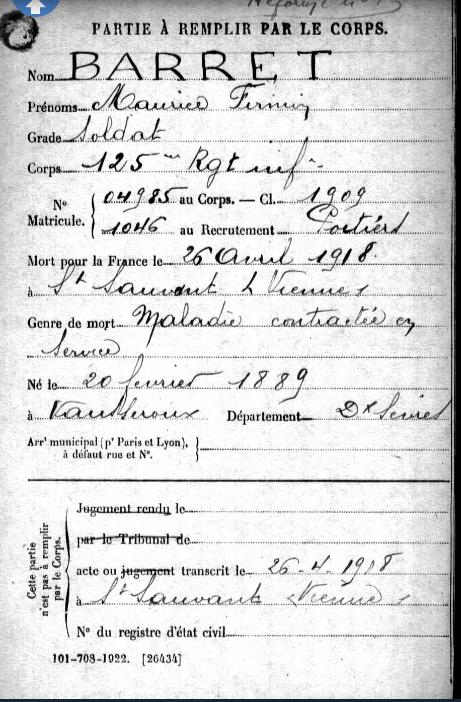 Réformé n°
PARTIE À REMPLIR PAR LE CORPS.
Nom BARRET
Prénoms Maurice Firmin
Grade Soldat
Corps 125me Rgt inf
N° Matricule. { 04985 au Corps. — Cl. 1909
1046 au Recrutement Poitiers
Mort pour la France le 26 Avril 1918.
à St Sauvant (Vienne)
Genre de mort Maladie contractée en
Service
Né le 20 février 1889
à Vautebis Département Dx Sèvres
Arrt municipal (pr Paris et Lyon),
à défaut rue et N°.
Cette partie n'est pas à remplir par le Corps.
Jugement rendu le
par le Tribunal de
acte ou jugement transcrit le 26-4-1918
à St Sauvant (Vienne)
N° du registre d'état civil
101-708-1922. [26434]